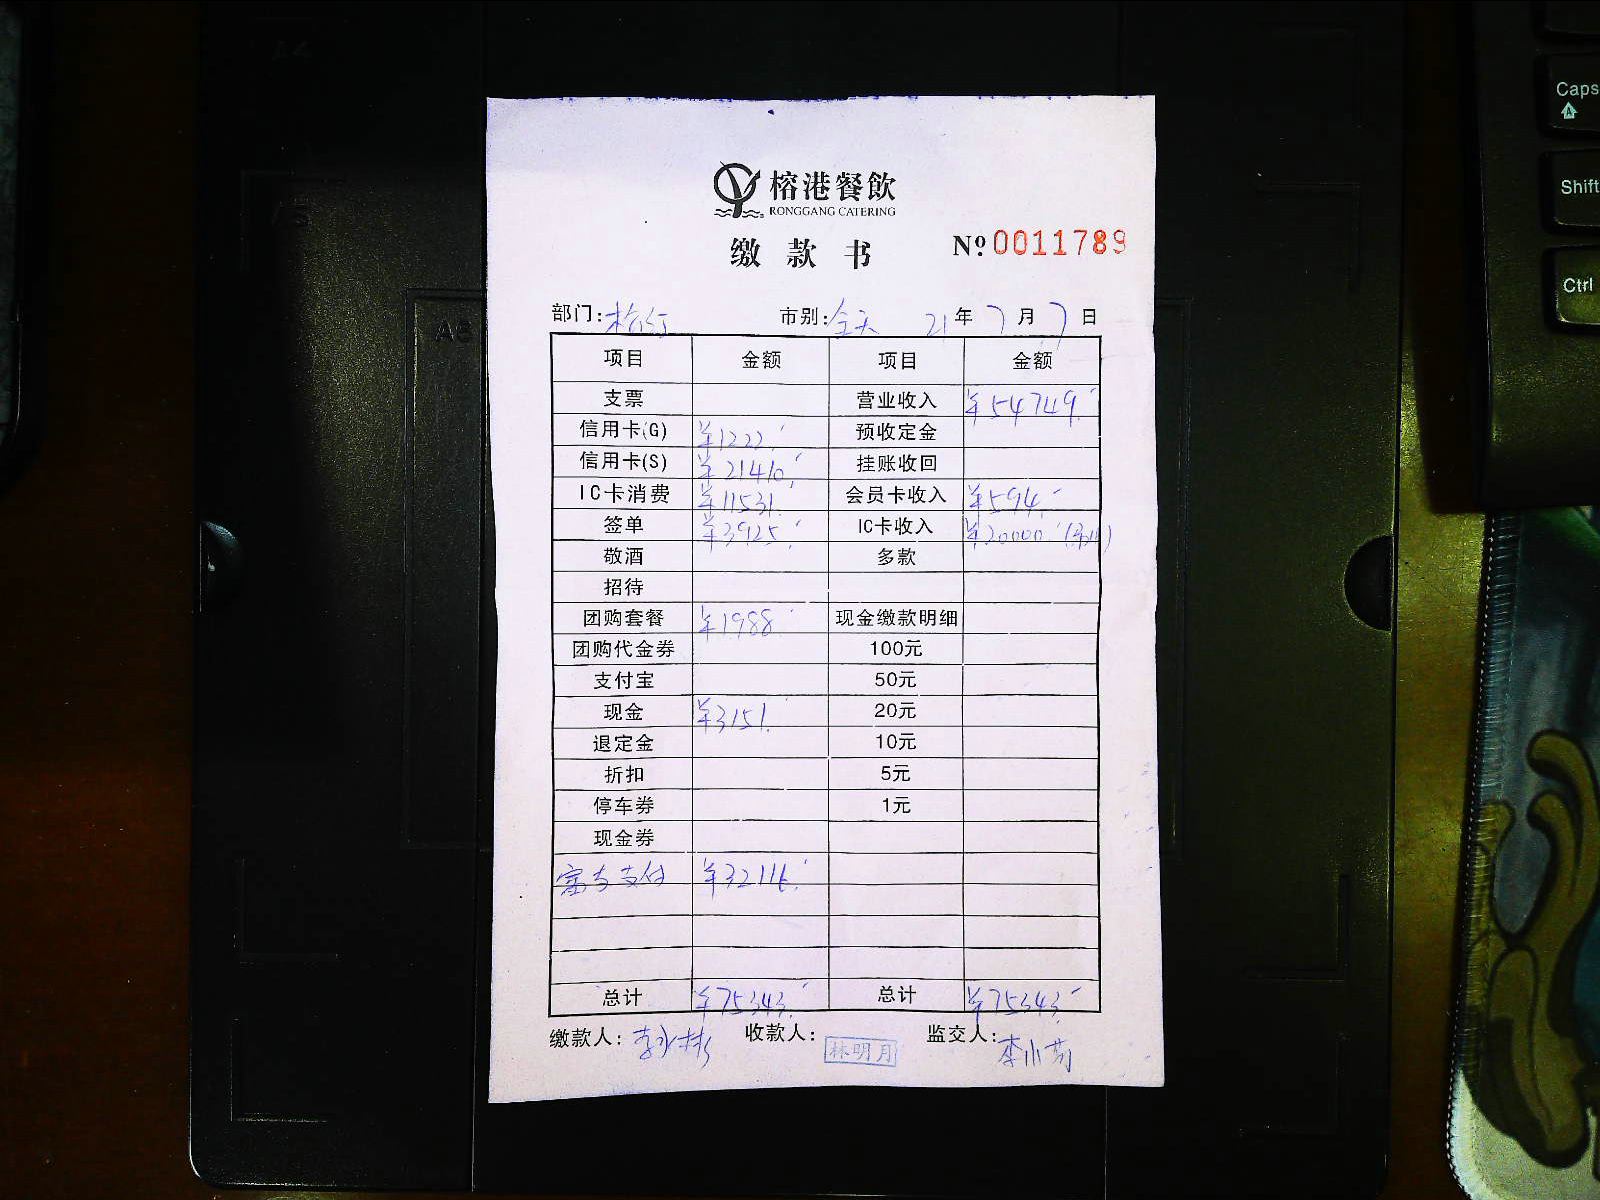 榕港餐飲
RONGGANG CATERING
缴款书 Nº 0011789
部门: 市别:全天 21年7月7日
项目 金额 项目 金额
支票 营业收入 ¥54749.-
信用卡(G) ¥1222.- 预收定金
信用卡(S) ¥21410.- 挂账收回
IC卡消费 ¥11531.- 会员卡收入 ¥594.-
签单 ¥3925.- IC卡收入 ¥20000.-
敬酒 多款
招待
团购套餐 ¥1988.- 现金缴款明细
团购代金券 100元
支付宝 50元
现金 ¥3151.- 20元
退定金 10元
折扣 5元
停车券 1元
现金券
富友支付 ¥32116.-
总计 ¥75343.- 总计 ¥75343.-
缴款人:李永彬 收款人:林明月 监交人:李小芳
Caps
Shift
Ctrl